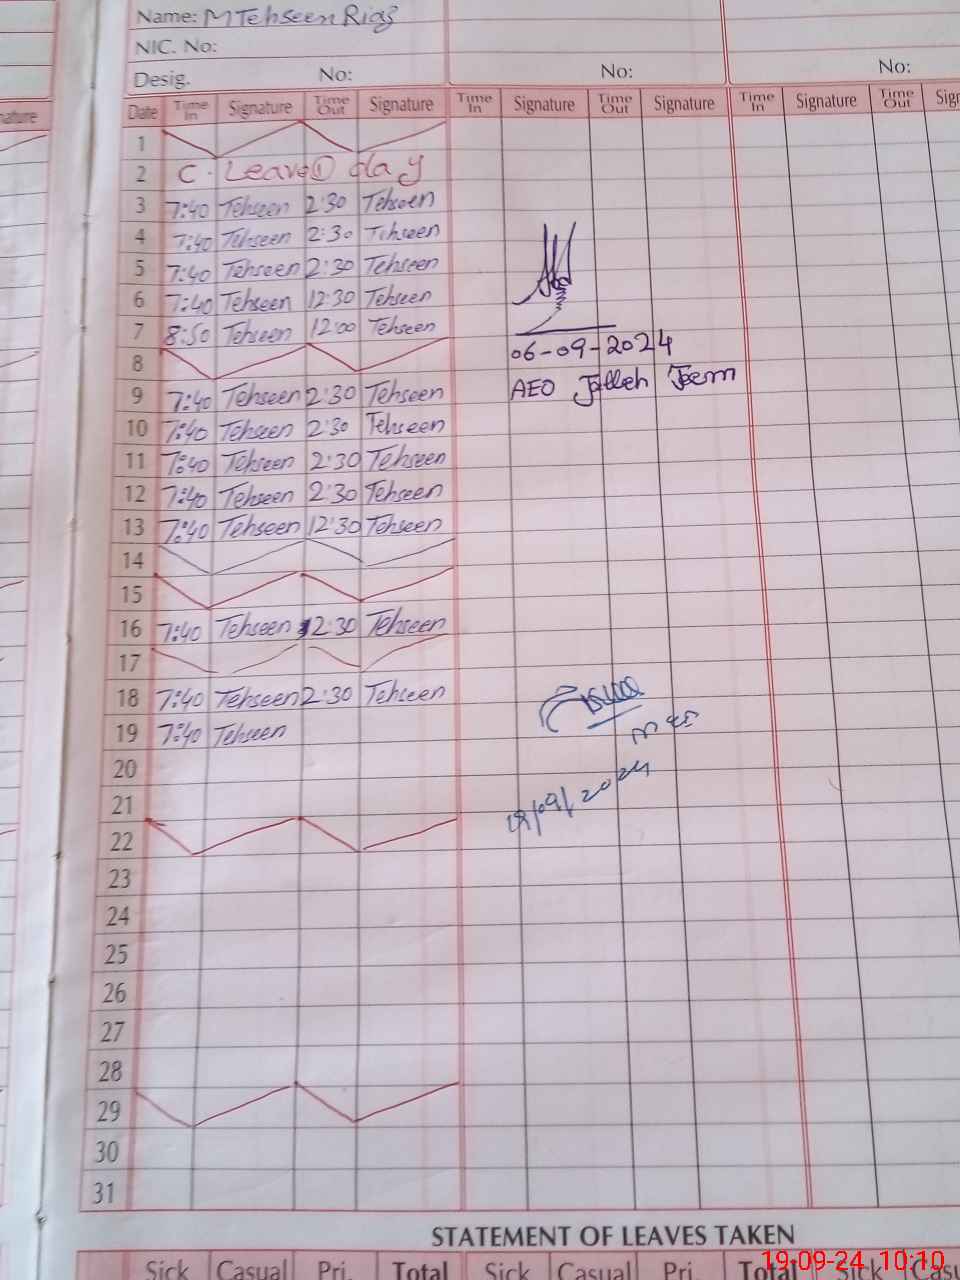 Name: M Tehseen Riaz
NIC. No:
Desig. No: No: No:
nature
Date Time In Signature Time Out Signature Time In Signature Time Out Signature Time In Signature Time Out Sig
1
2 C. Leave ① day
3 7:40 Tehseen 2:30 Tehseen
4 7:40 Tehseen 2:30 Tehseen
5 7:40 Tehseen 2:30 Tehseen
6 7:40 Tehseen 12:30 Tehseen
7 8:50 Tehseen 12:00 Tehseen
06-09-2024
8
AEO
9 7:40 Tehseen 2:30 Tehseen
10 7:40 Tehseen 2:30 Tehseen
11 7:40 Tehseen 2:30 Tehseen
12 7:40 Tehseen 2:30 Tehseen
13 7:40 Tehseen 12:30 Tehseen
14
15
16 7:40 Tehseen 2:30 Tehseen
17
18 7:40 Tehseen 2:30 Tehseen
19 7:40 Tehseen
20
21
/09/2024
22
23
24
25
26
27
28
29
30
31
STATEMENT OF LEAVES TAKEN
Sick Casual Pri. Total Sick Casual Pri. Total Sick Casu
19-09-24 10:10